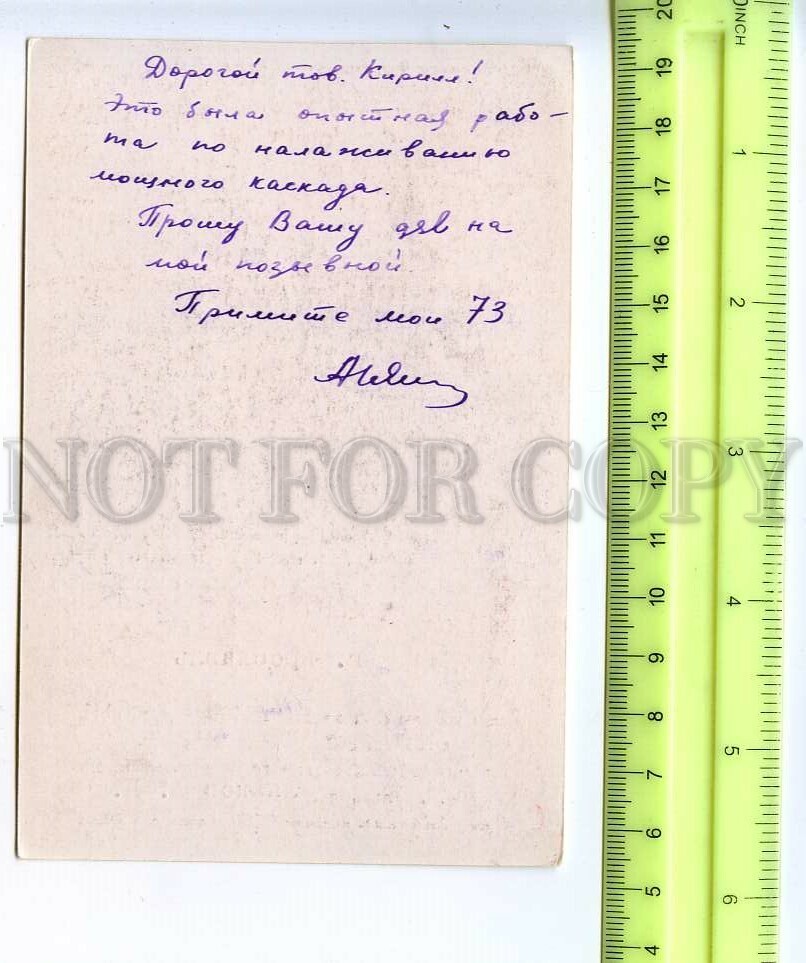 Дорогой тов. Кирилл!
Это была опытная рабо-
та по налаживанию
мощного каскада.
Прошу Вашу для на
мой позывной.
Примите мои 73
NOT FOR COPY
INCH
20
19
18
17
16
15
14
13
12
11
10
9
8
7
6
5
4
1
2
3
4
5
6